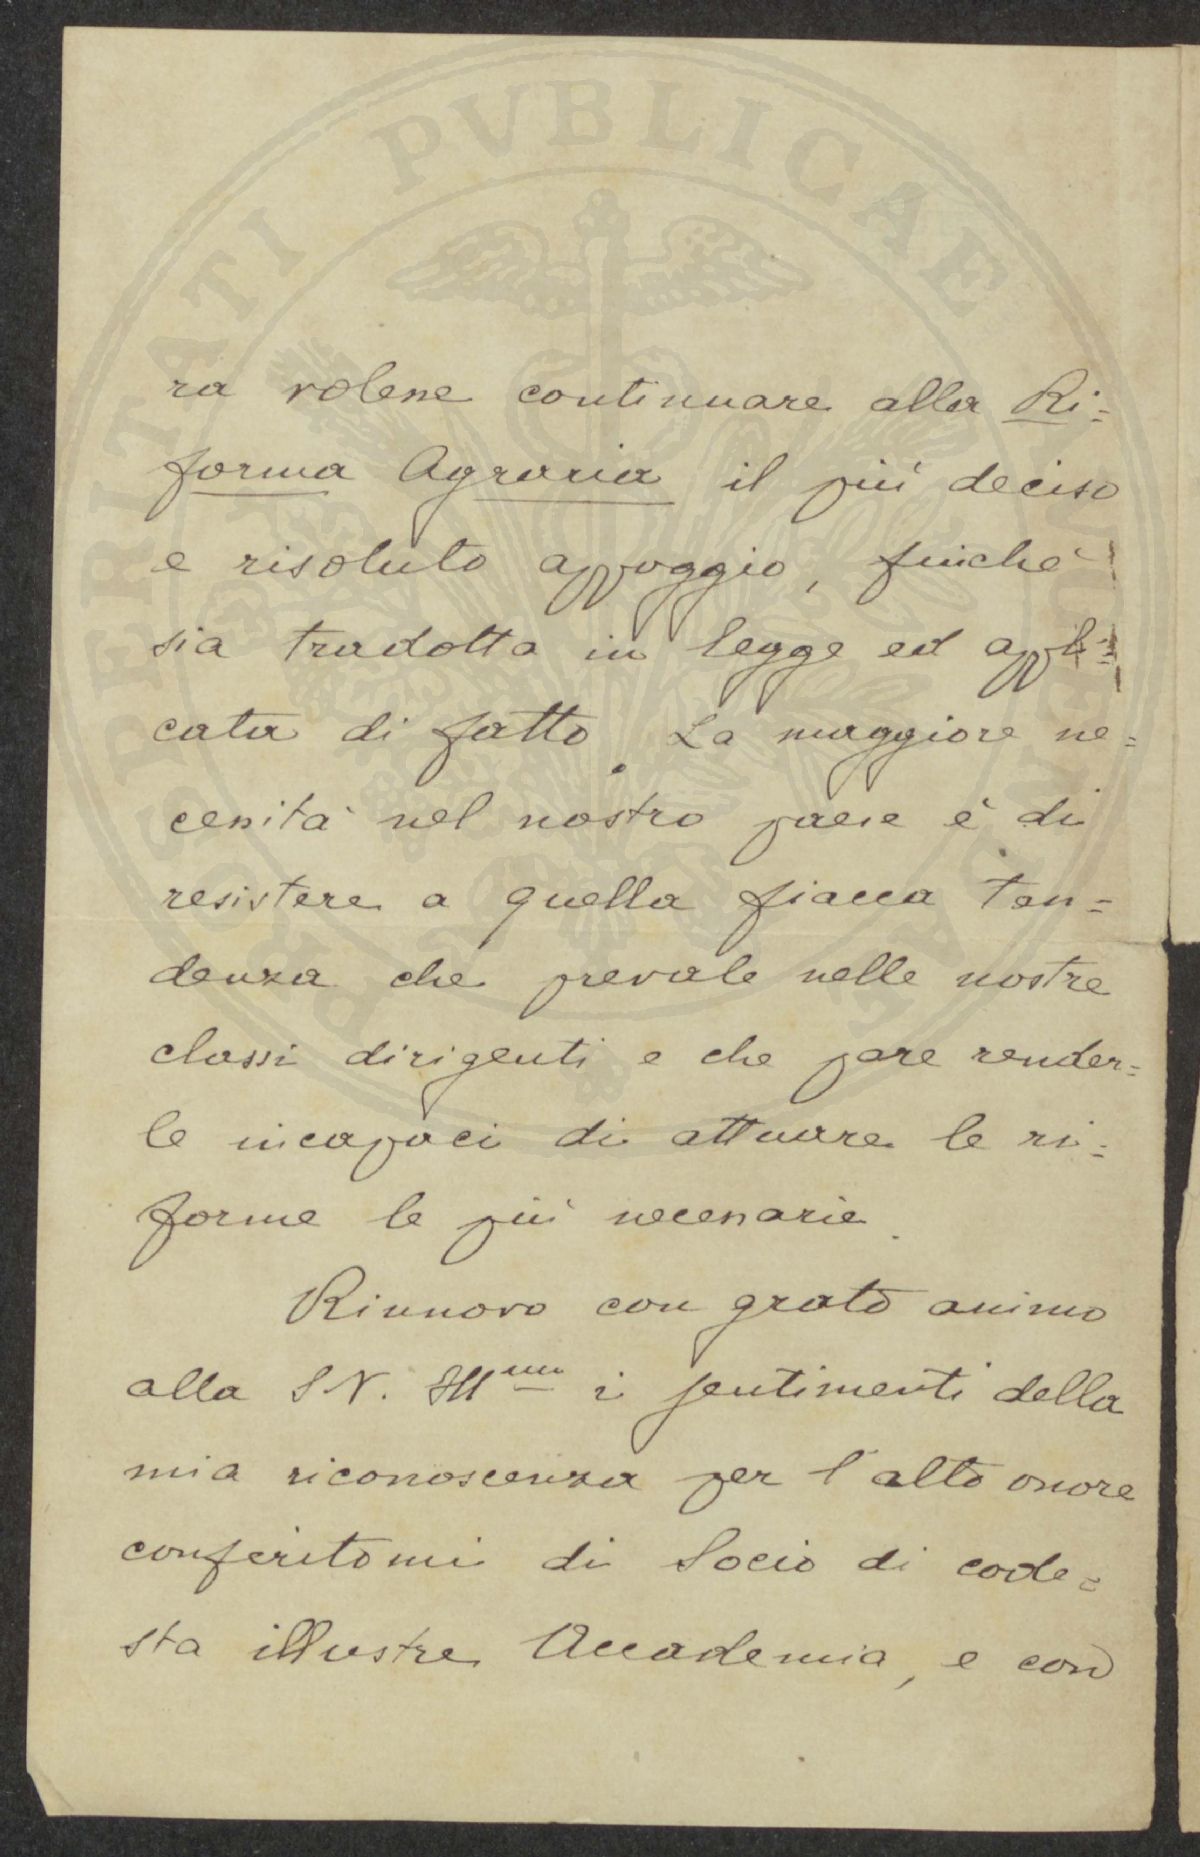 PROSPERITATI PUBLICAE AUGENDAE
ra volesse continuare alla Ri=
forma Agraria il più deciso
e risoluto appoggio, finchè
sia tradotta in legge ed appli=
cata di fatto. La maggiore ne=
cessità nel nostro paese è di
resistere a quella fiacca ten=
denza che prevale nelle nostre
classi dirigenti e che pare render=
le incapaci di attuare le ri=
forme le più necessarie.
Rinnovo con grato animo
alla S.V. Illma i sentimenti della
mia riconoscenza per l'alto onore
conferitomi di Socio di code=
sta illustre Accademia, e con